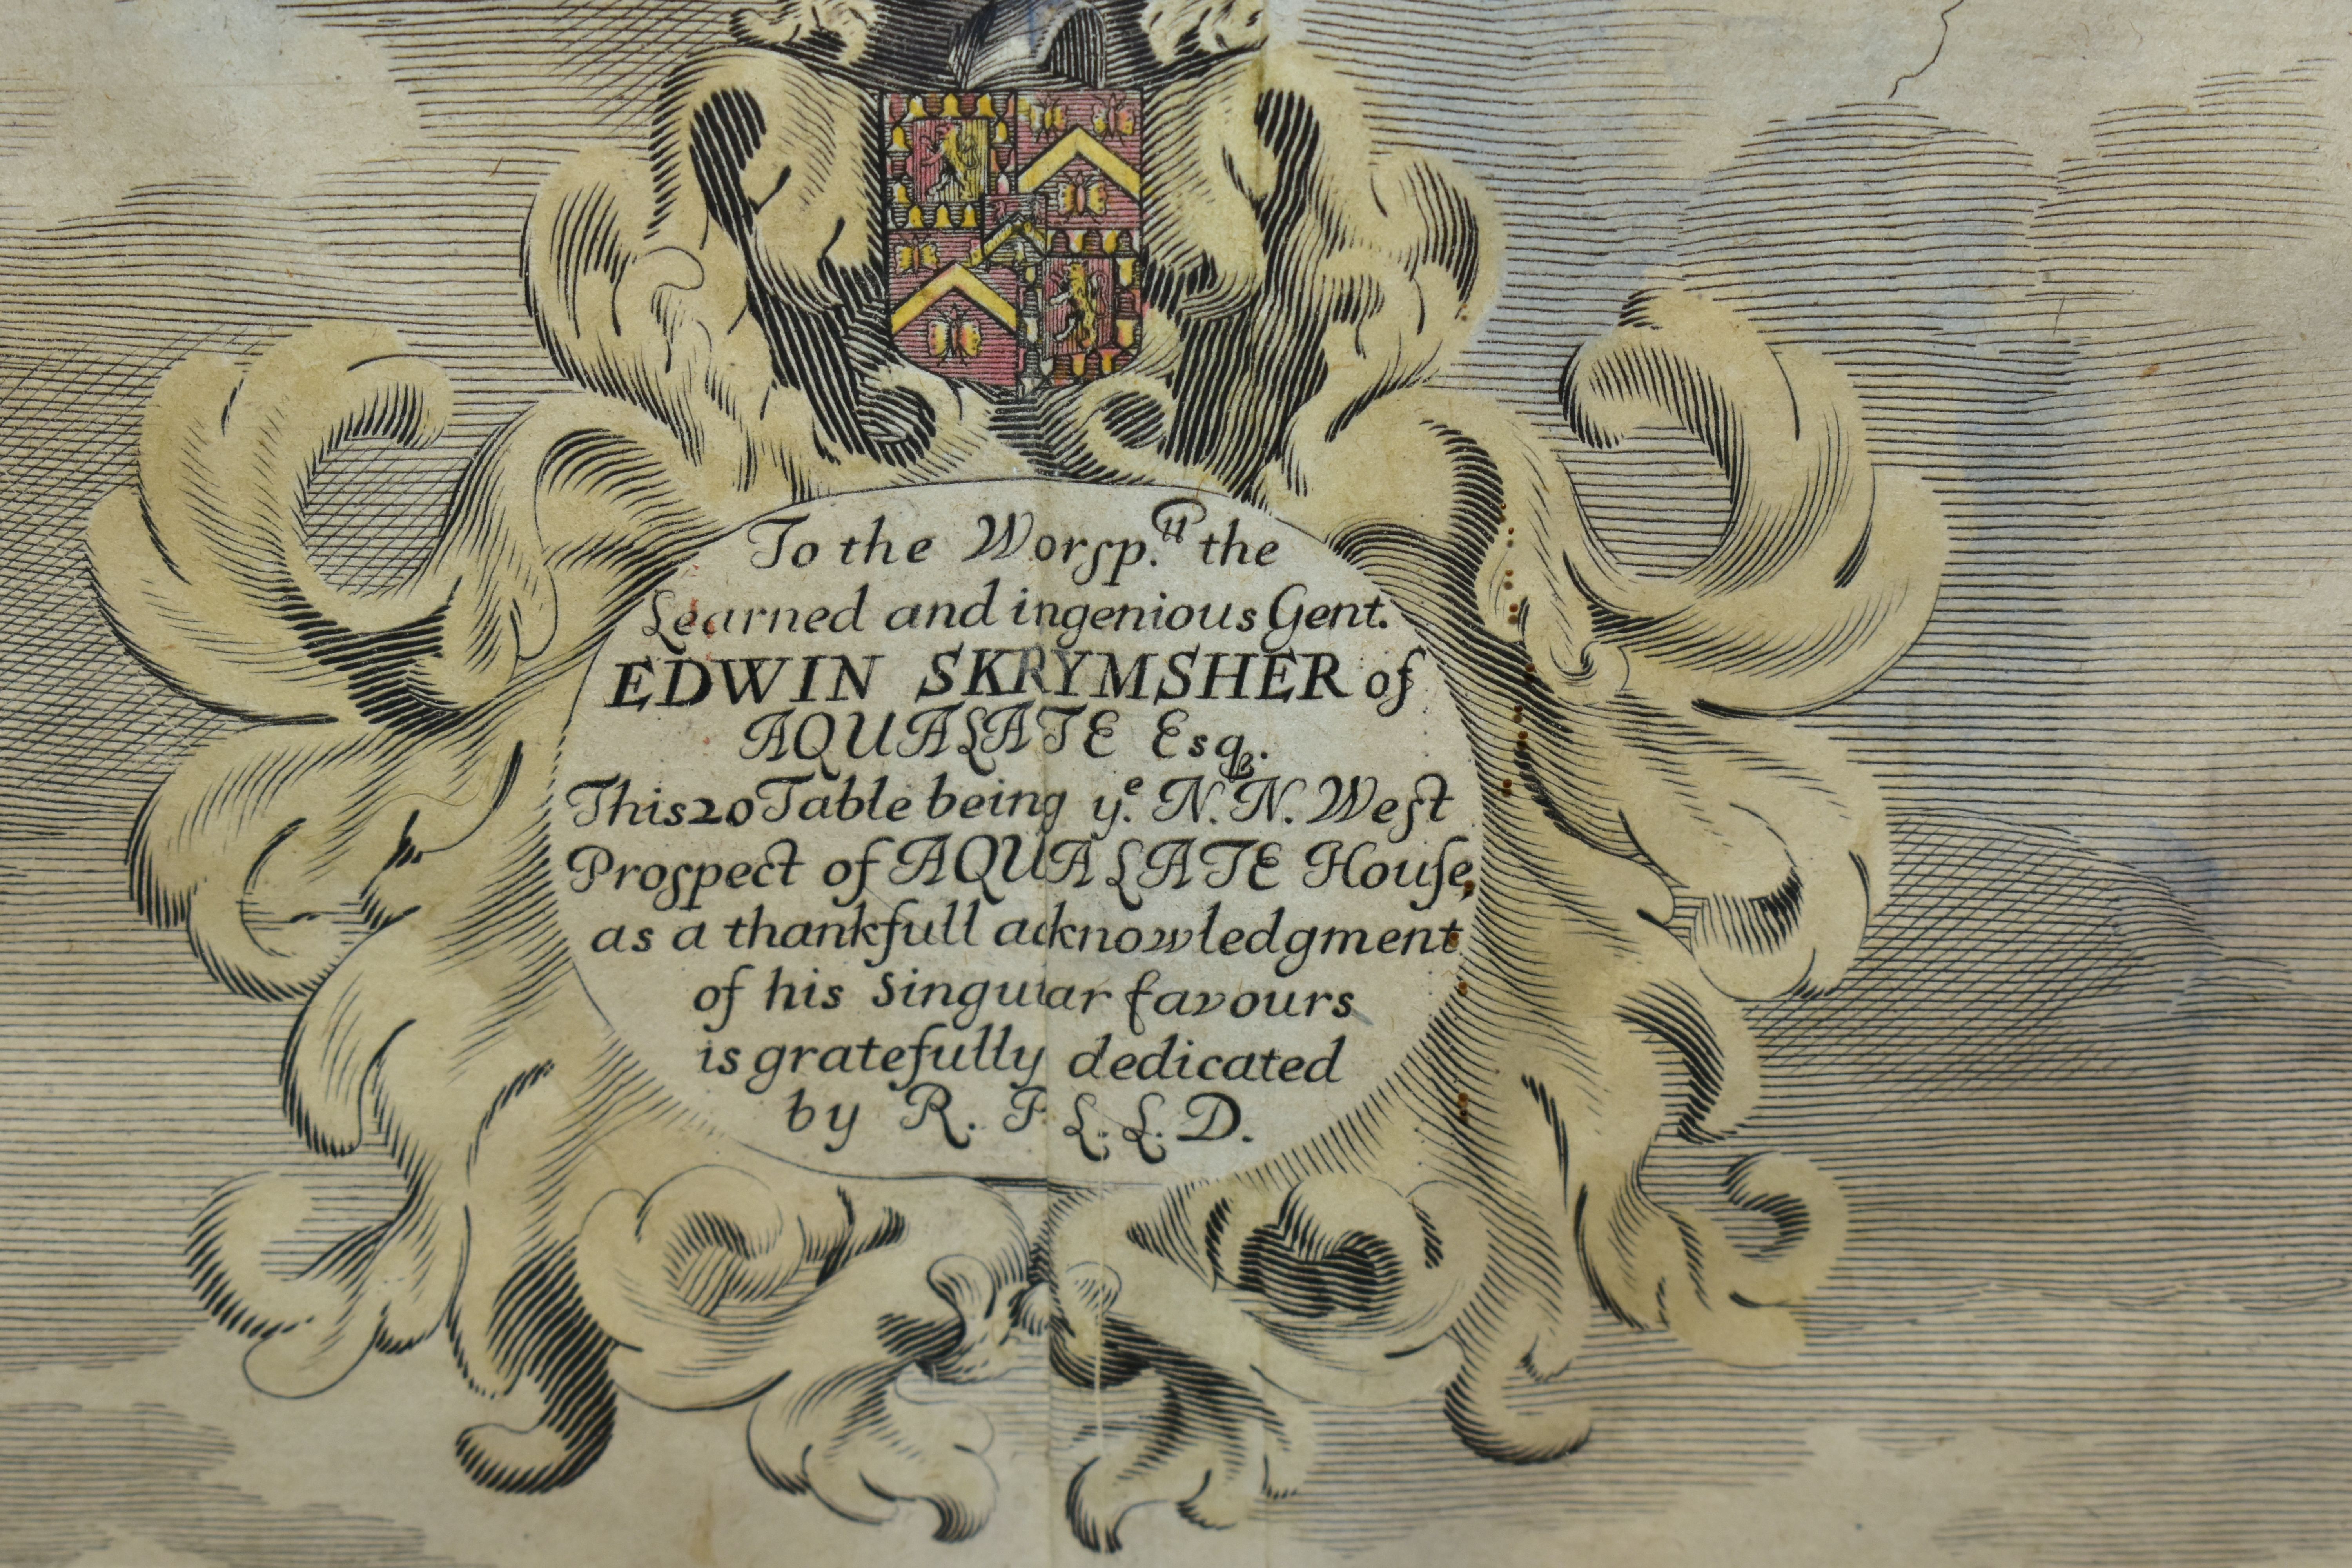 To the Worſp.ll the
Learned and ingenious Gent.
EDWIN SKRYMSHER of
AQUALATE Esqr.
This 20 Table being ye. N.N. Weſt
Proſpect of AQUALATE Houſe,
as a thankfull acknowledgment
of his Singular favours
is gratefully dedicated
by R. P. L.L.D.